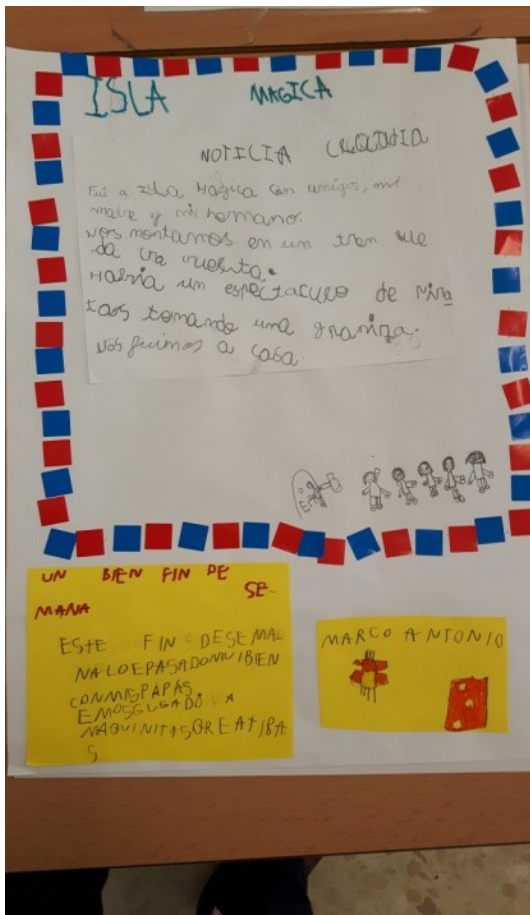 ISLA MAGICA
NOTICIA
Fui a ISla Magica con amigos, mi
y mi hemano.
Nos montamos en un tren que
da
Habia un espectaculo de pira
tas tomando una graniza.
Nos fuimos a casa.
UN BIEN FIN DE
SE
MANA
ESTE FINSDESEMA
NALOEPASADOMUIBIEN
CONMISPAPÁS.
EMOSGUGADO A
MAQUINITASCREATIBA
S
MARCO ANTONIO